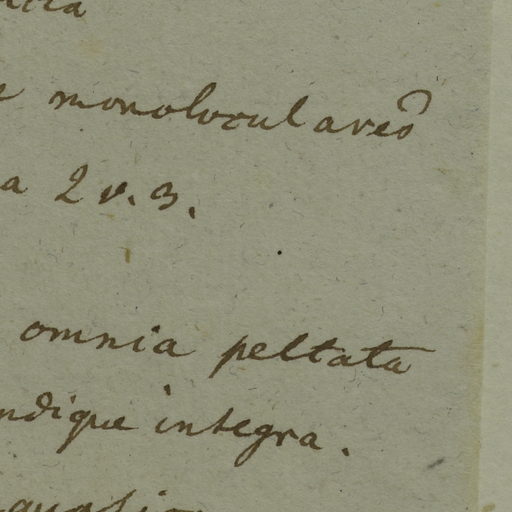 monoloculares
a 2 v. 3.
omnia peltata
ndique integra.